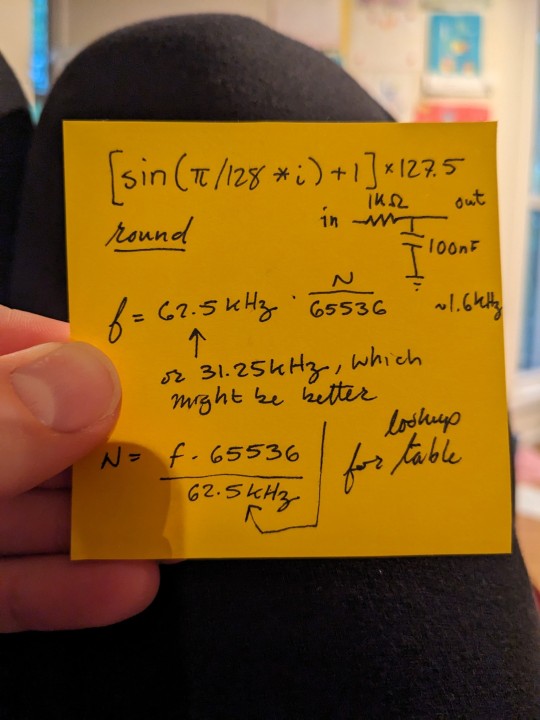 [sin(π/128 * i) + 1] × 127.5
round
in 1KΩ out
100nF
~1.6kHz
f = 62.5 kHz · N/65536
or 31.25kHz, which
might be better
N = f · 65536 / 62.5kHz
for lookup table